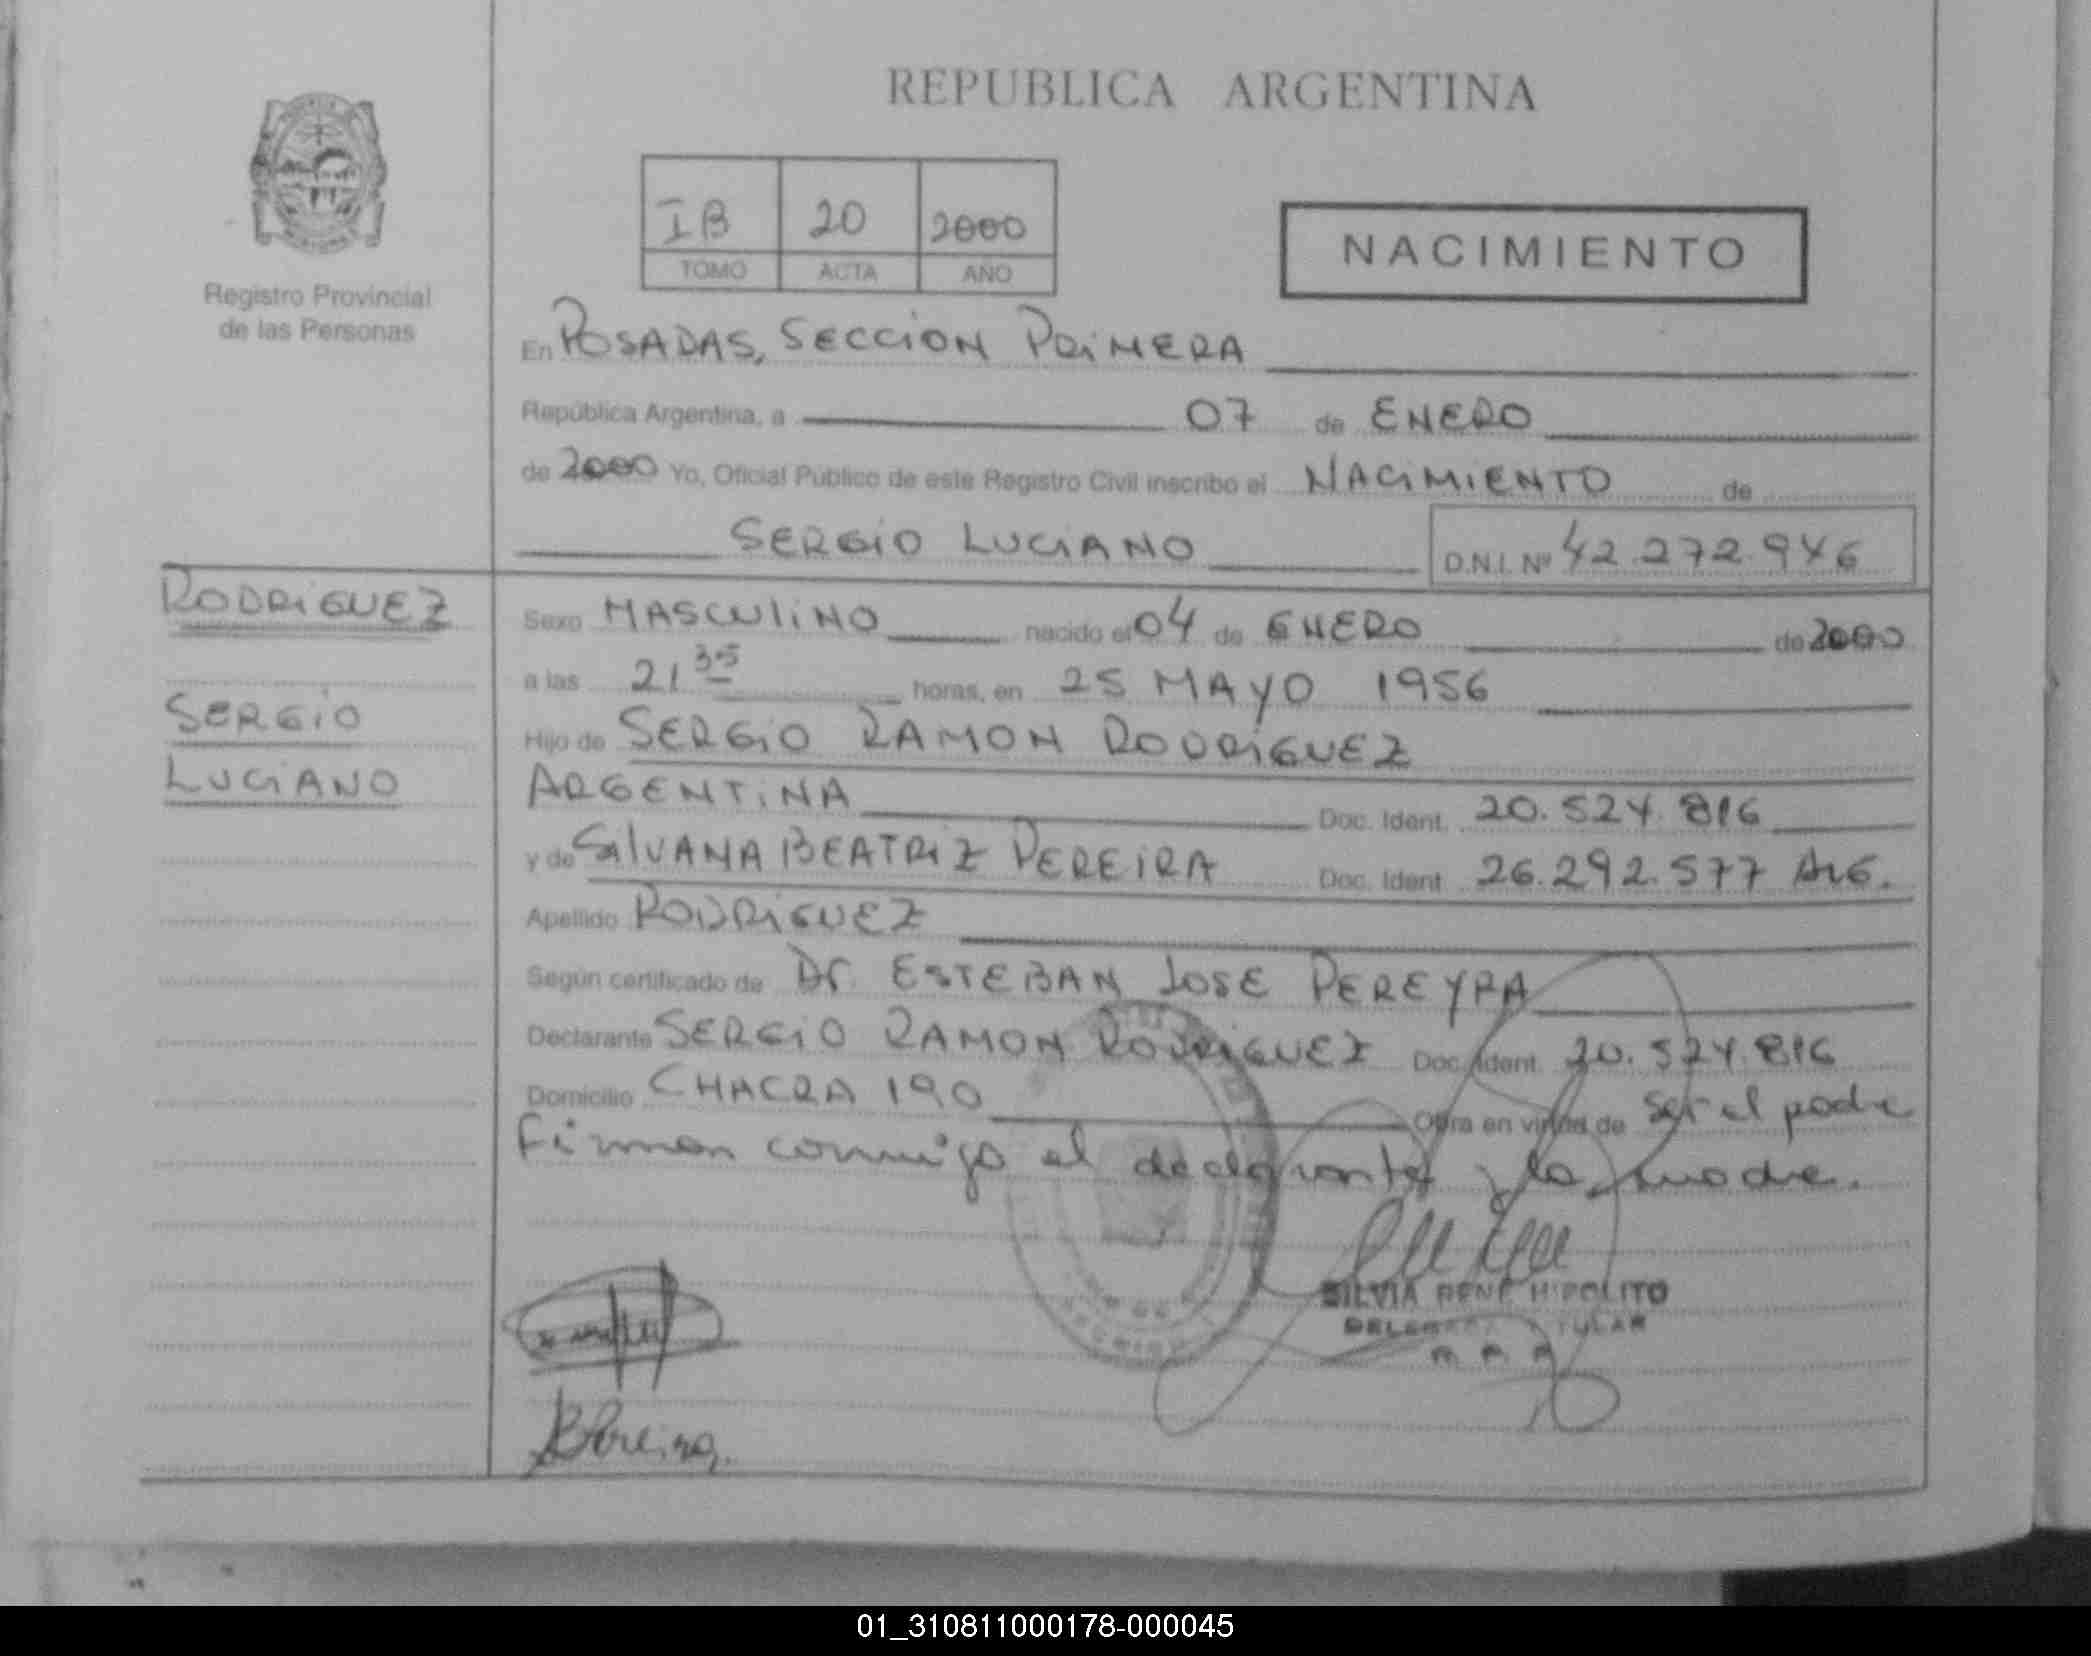 REPUBLICA ARGENTINA
IB 20 2000
TOMO ACTA AÑO
NACIMIENTO
Registro Provincial
de las Personas
En POSADAS, SECCION PRIMERA
República Argentina, a 07 de ENERO
de 2000 Yo, Oficial Público de este Registro Civil inscribo el NACIMIENTO de
SERGIO LUCIANO D.N.I. Nº 42.272.946
RODRIGUEZ
SERGIO
LUCIANO
Sexo MASCULINO nacido el 04 de ENERO de 2000
a las 21 35 horas, en 25 MAYO 1956
Hijo de SERGIO RAMON RODRIGUEZ
ARGENTINA Doc. Ident. 20.524.816
y de SILVANA BEATRIZ PEREIRA Doc. Ident. 26.292.577 ARG.
Apellido RODRIGUEZ
Según certificado de Dr. ESTEBAN JOSE PEREYRA
Declarante SERGIO RAMON RODRIGUEZ Doc. Ident. 20.524.816
Domicilio CHACRA 190 Obra en virtud de ser el padre
Firman conmigo el declarante y la madre.
SILVIA RENE HIPOLITO
BPereira
01_310811000178-000045